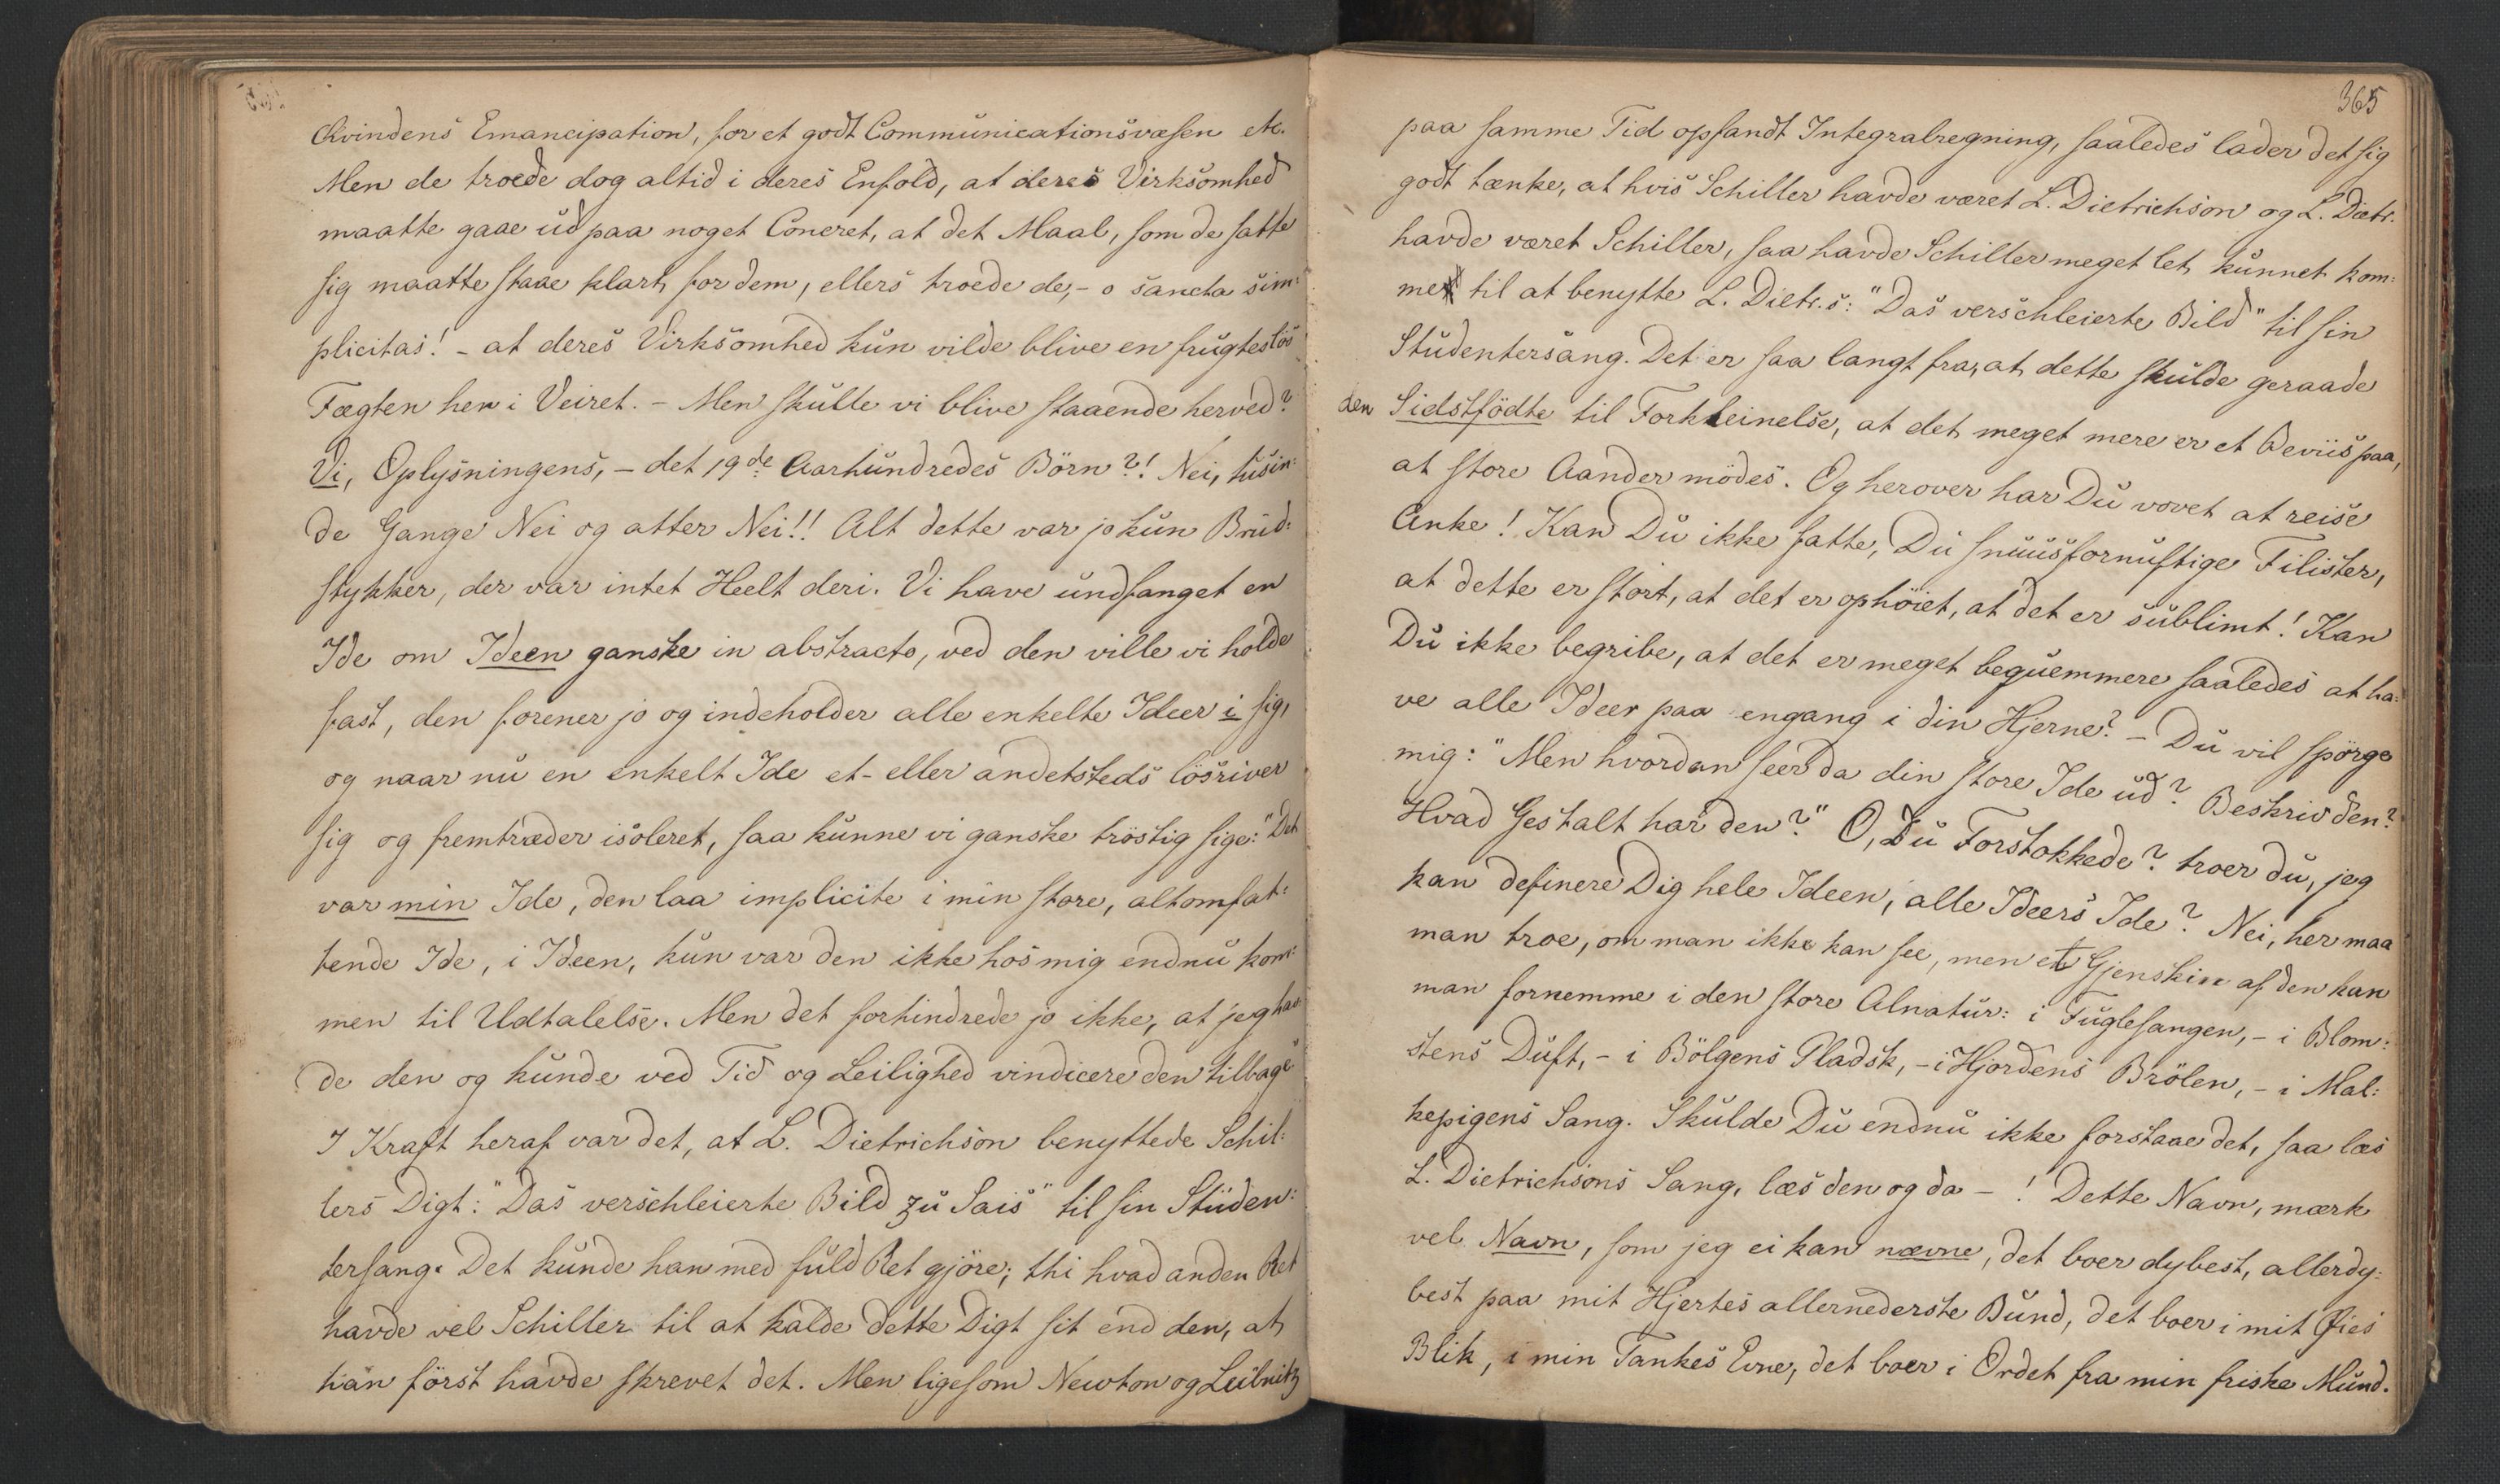 Kvindens Emancipation, for et godt Communicationsvæsen etc.
Men de troede dog altid i deres Enfold, at deres Virksomhed
maatte gaae ud paa noget Concret, at det Maal, som de satte
sig maatte staae klart for dem, ellers troede de, - o sancta sim:
plicitas! - at deres Virksomhed kun vilde blive en frugteslös
Fægten hen i Veiret. - Men skulle vi blive staaende herved?
Vi, Oplysningens, - det 19de Aarhundredes Börn?! Nei, tusin:
de Gange Nei og atter Nei!! Alt dette var jo kun Brud:
stykker, der var intet Heelt deri. Vi have undfanget en
Ide om Ideen ganske in abstracto, ved den ville vi holde
fast, den forener jo og indeholder alle enkelte Ideer i sig,
og naar nu en enkelt Ide et- eller andetsteds lösriver
sig og fremtræder isoleret, saa kunne vi ganske tröstig sige: "Det
var min Ide, den laa implicite i min store, altomfat:
tende Ide, i Ideen, kun var den ikke hos mig endnu kom:
men til Udtalelse. Men det forhindrede jo ikke, at jeg hav:
de den og kunde ved Tid og Leilighed vindicere den tilbage"
I Kraft heraf var det, at L. Dietrichson benyttede Schil:
lers Digt: "Das verschleierte Bild zu Sais" til sin Studen:
tersang. Det kunde han med fuld Ret gjöre; thi hvad anden Ret
havde vel Schiller til at kalde dette Digt sit end den, at
han först havde skrevet det. Men ligesom Newton og Leibnitz
365
paa samme Tid opfandt Integralregning, saaledes lader det sig
godt tænke, at hvis Schiller havde været L. Dietrichson og L. Dietr.
havde været Schiller, saa havde Schiller meget let kunnet kom:
met til at benytte L. Dietr.s: "Das verschleierte Bild" til sin
Studentersang. Det er saa langt fra, at dette skulde geraade
den Sidstfödte til Forkleinelse, at det meget mere er et Beviis paa,
at store Aander mödes. Og herover har Du vovet at reise
Anke! Kan Du ikke fatte, Du snuusfornuftige Filister,
at dette er stort, at det er ophöiet, at det er sublimt! Kan
Du ikke begribe, at det er meget beqvemmere saaledes at ha:
ve alle Ideer paa engang i din Hjerne? - Du vil spörge
mig: "Men hvordan seer da din store Ide ud? Beskriv den?
Hvad Gestalt har den?" O, Du Forstokkede? troer du, jeg
kan definere Dig hele Ideen, alle Ideers Ide? Nei, her maa
man troe, om man ikke kan see, men et Gjenskin af den kan
man fornemme i den store Alnatur: i Fuglesangen, - i Blom:
stens Duft, - i Bölgens Pladsk, - i Hjordens Brölen, - i Mal:
kepigens Sang. Skulde Du endnu ikke forstaae det, saa læs
L. Dietrichsons Sang, læs den og da - ! Dette Navn, mærk
vel Navn, som jeg ei kan nævne, det boer dybest, allerdy:
best paa mit Hjertes allernederste Bund, det boer i mit Øies
Blik, i min Tankes Evne, det boer i Ordet fra min friske Mund.